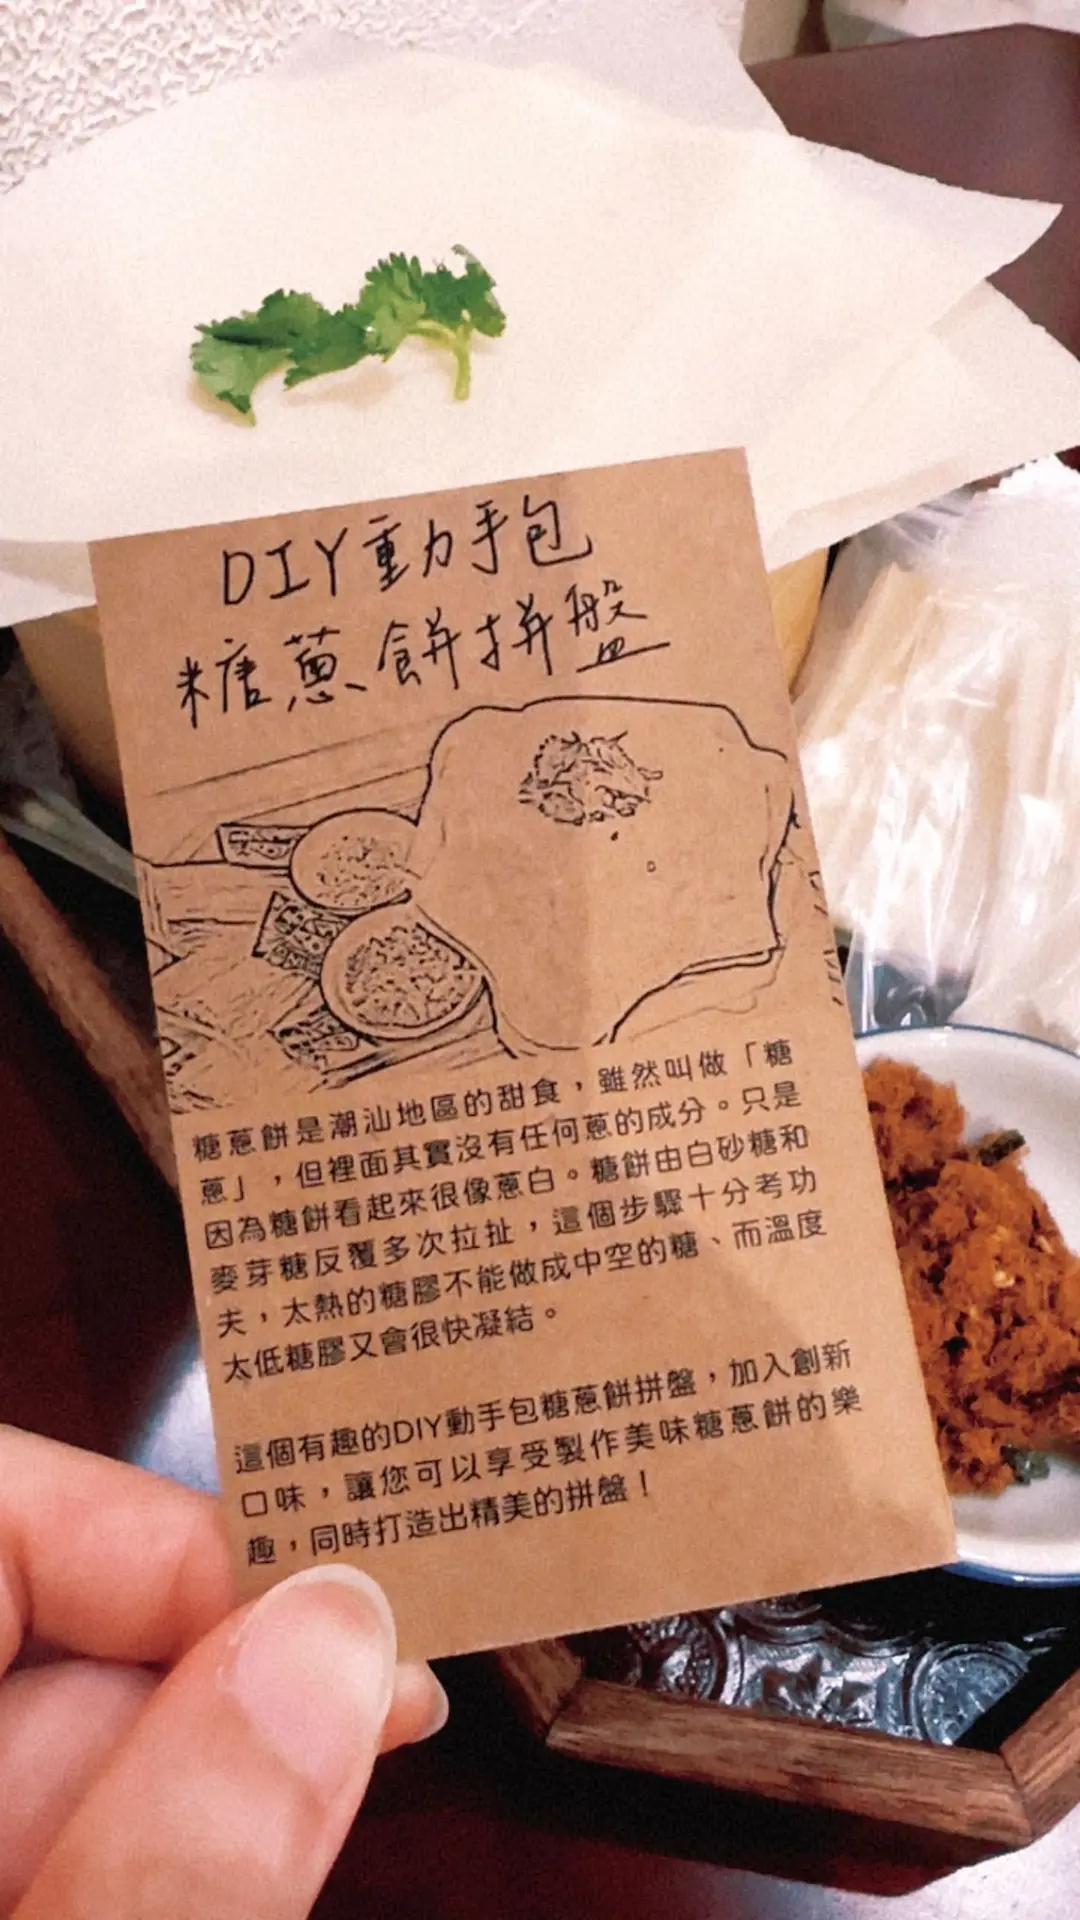 DIY動手包
糖蔥餅拼盤
糖蔥餅是潮汕地區的甜食，雖然叫做「糖
蔥」，但裡面其實沒有任何蔥的成分。只是
因為糖餅看起來很像蔥白。糖餅由白砂糖和
麥芽糖反覆多次拉扯，這個步驟十分考功
夫，太熱的糖膠不能做成中空的糖、而溫度
太低糖膠又會很快凝結。
這個有趣的DIY動手包糖蔥餅拼盤，加入創新
口味，讓您可以享受製作美味糖蔥餅的樂
趣，同時打造出精美的拼盤！